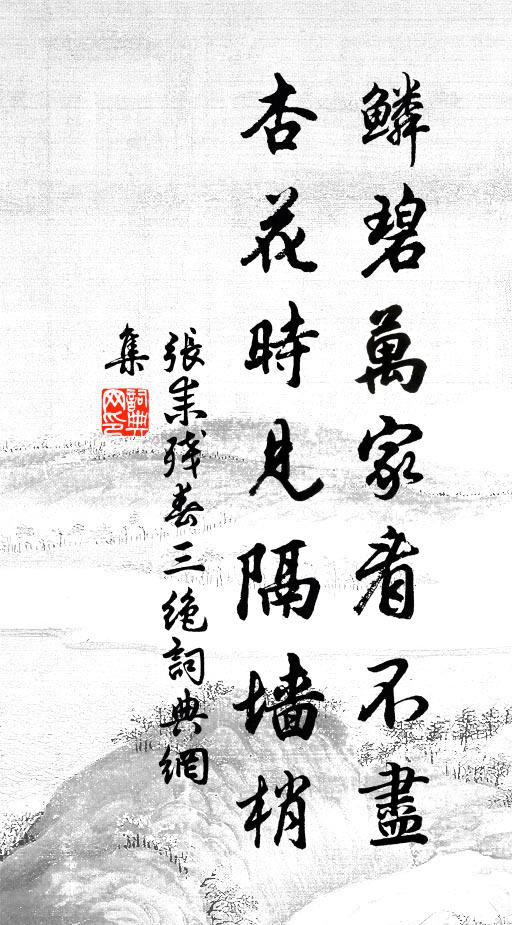 鱗碧萬家看不盡
杏花時見隔墙梢
張耒残春三絶詞典網
集
詞典
网印